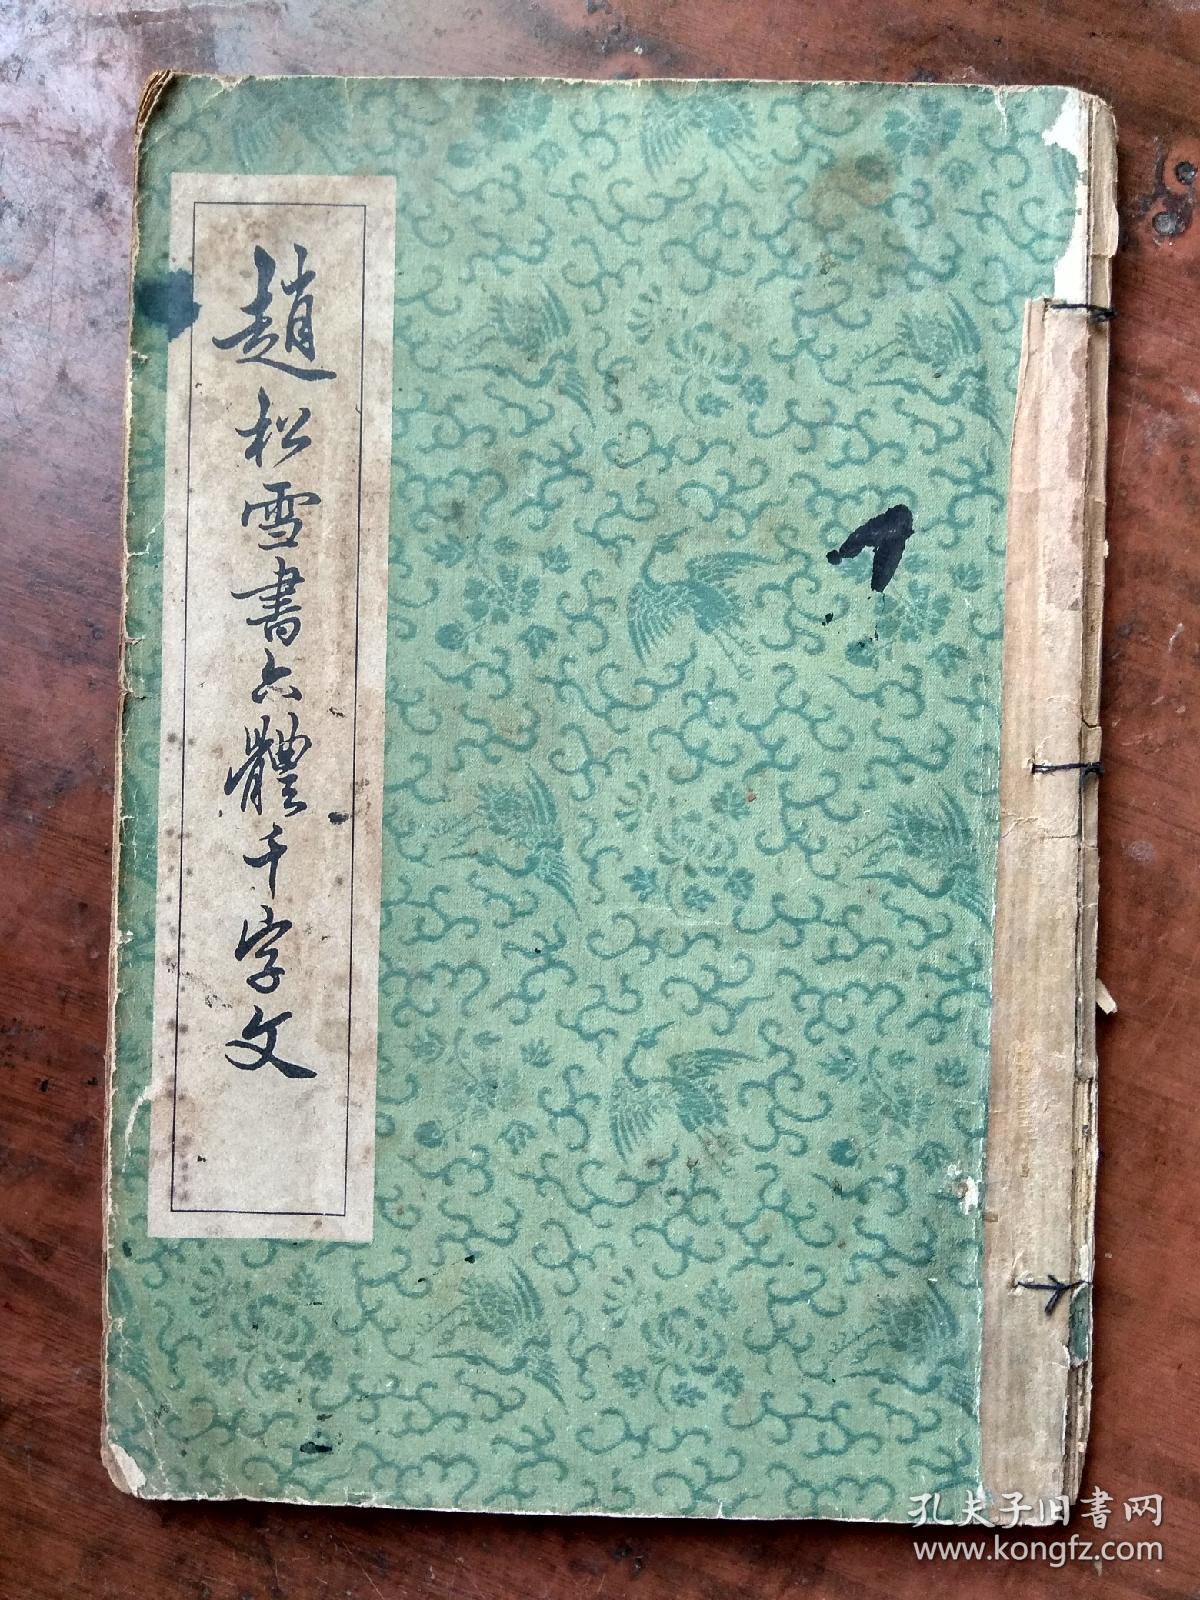 趙松雪書六體千字文
孔夫子旧書网
www.kongfz.com